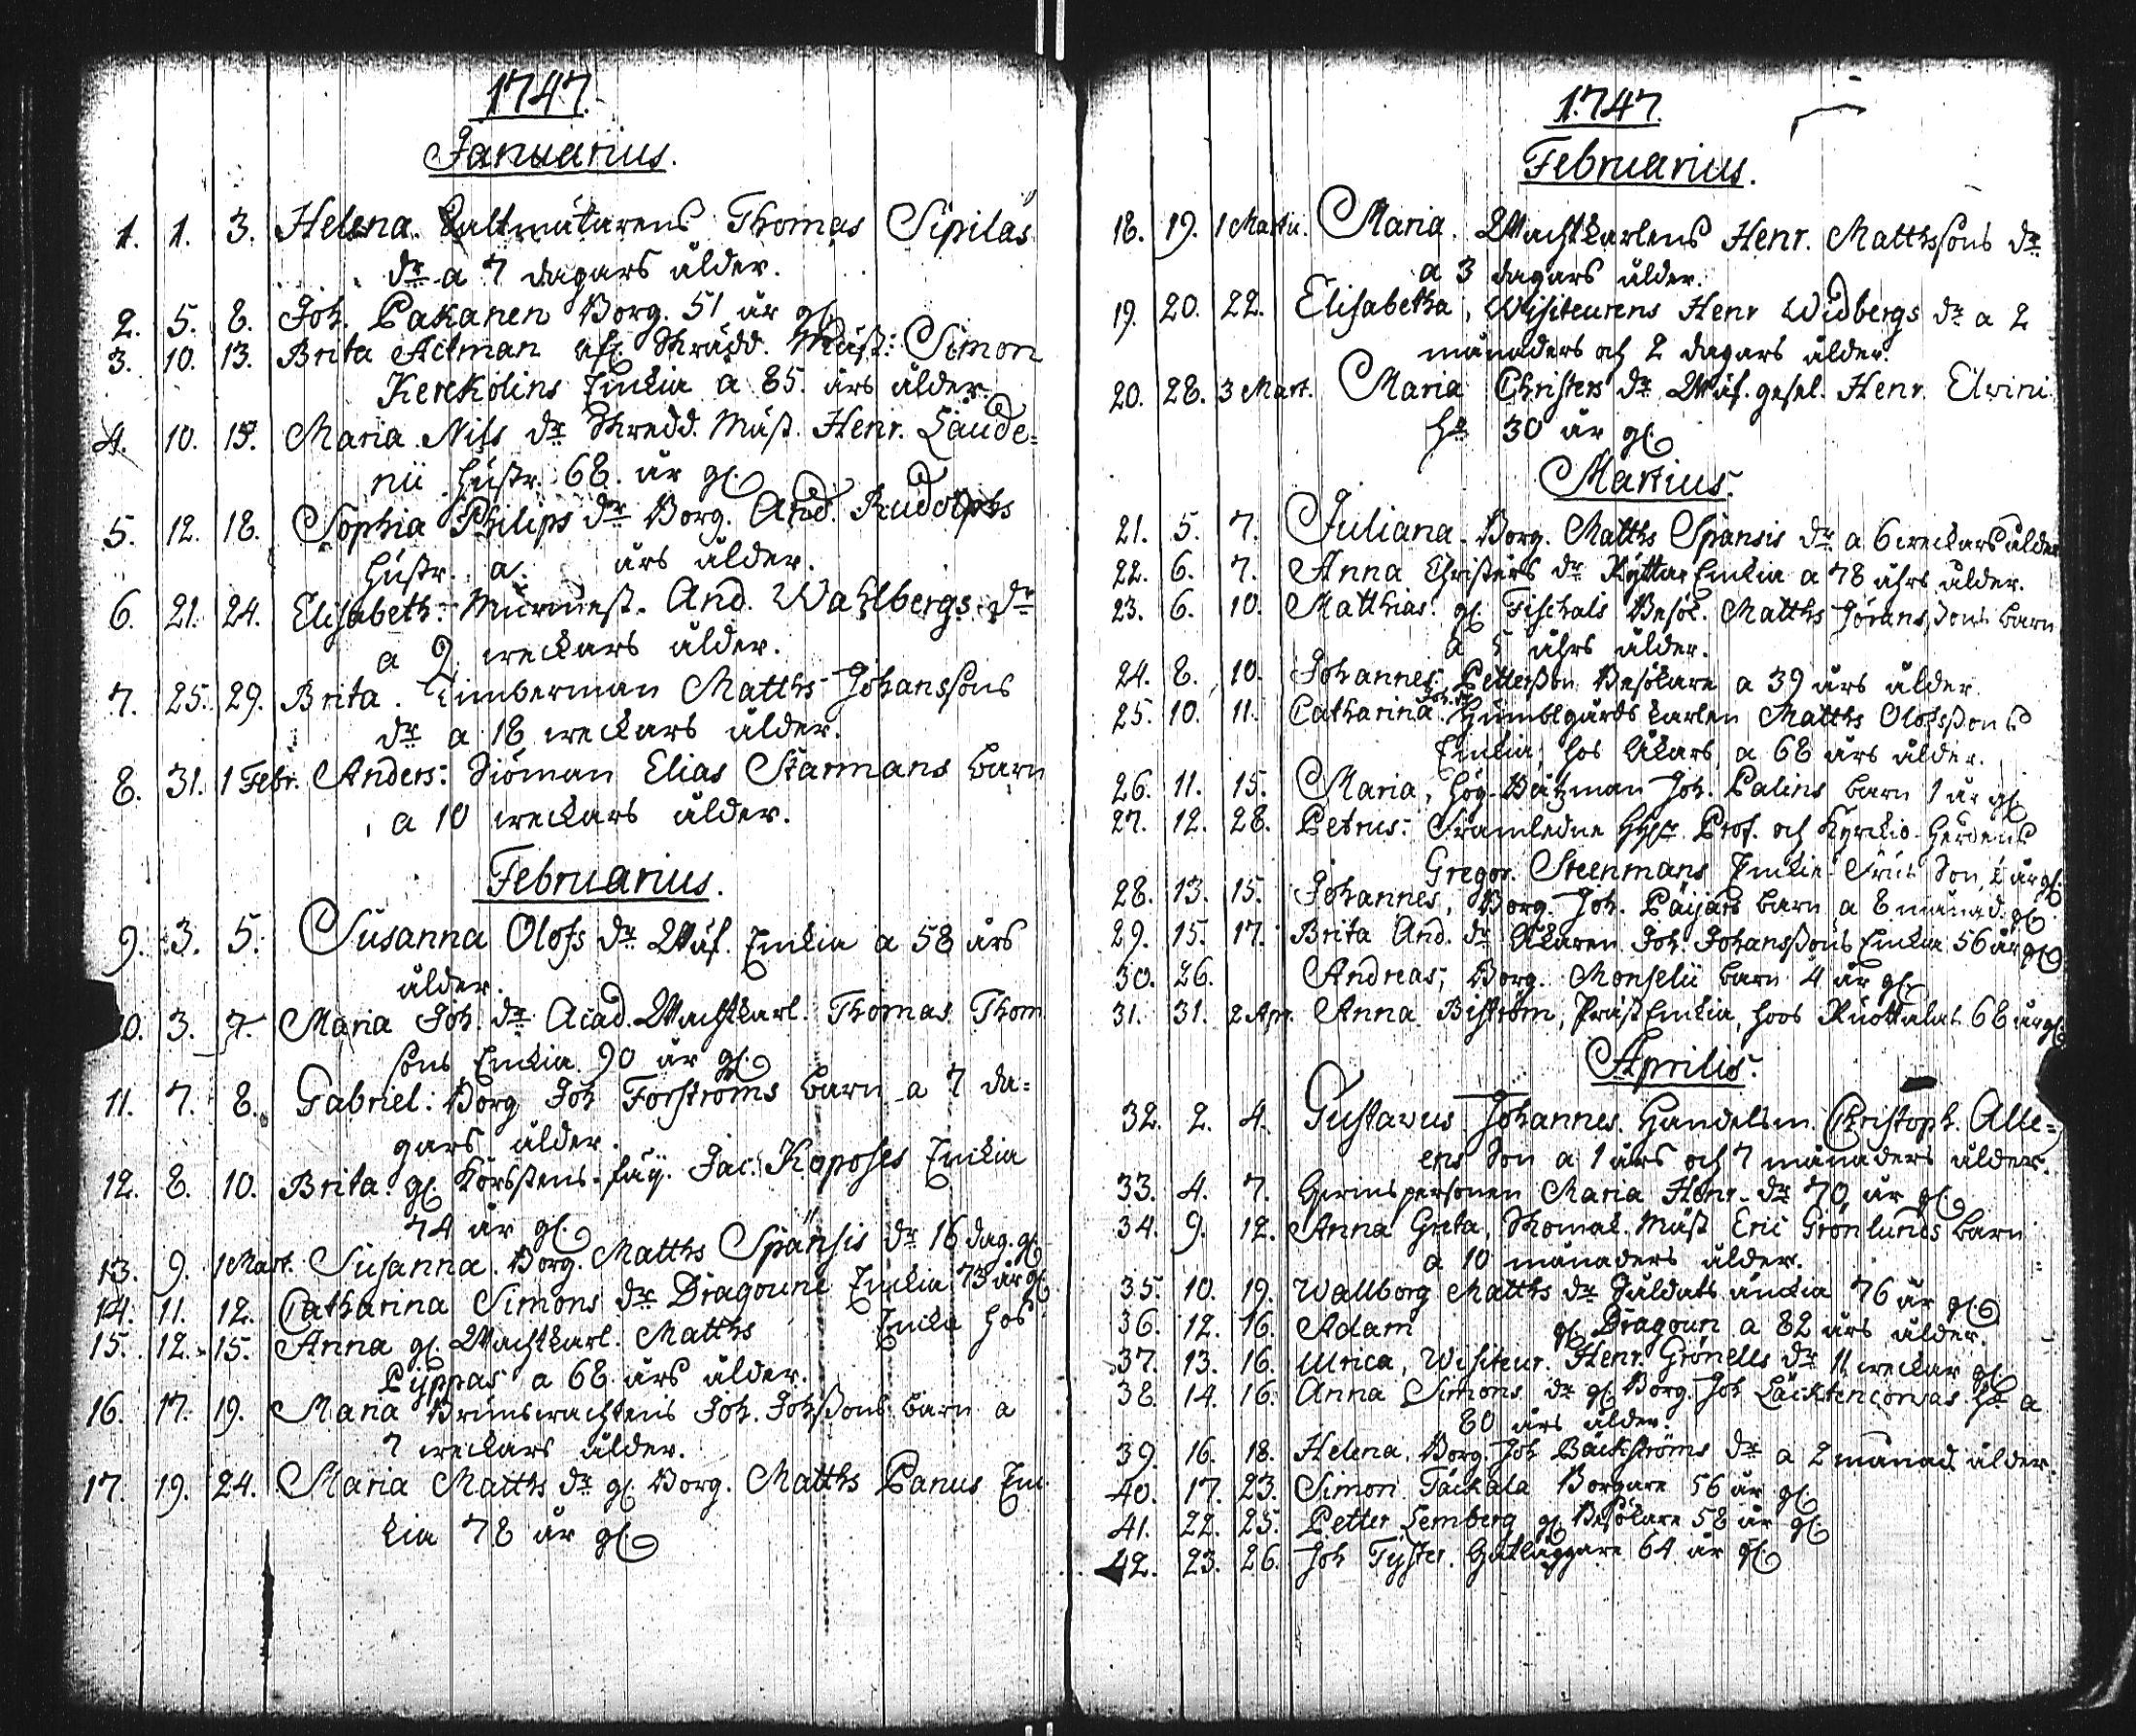 1747.
Januarius.
1. 1. 3. Helena. Saltmätarens Thomas Sipiläs
dr a 7 dagars ålder.
2. 5. 8. Joh. Pakanen Borg. 51 år gl.
3. 10. 13. Brita Acīman afl. Skrädd. Mäst: Simon
Kerekolins Enkia a 85. års ålder.
4. 10. 18. Maria Nils dr Skredd. Mäst. Henr. Laude=
nii hustr. 68. år gl.
5. 12. 18. Sophia Philips dr Borg. And. Rudolphs
hustr. a. års ålder.
6. 21. 24. Elisabeth: Murmest. And. Wahlbergs dr
a 9 weckars ålder.
7. 25. 29. Brita. Timberman Matths Johanssons
dr a 18 weckars ålder.
8. 31. 1 Febr. Anders: Siöman Elias Starmans barn
a 10 weckars ålder.
Februarius.
9. 3. 5. Susanna Olofs dr Wäf. Enkia a 58 års
ålder.
10. 3. 7. Maria Joh. dr Acad. Wachtkarl. Thomas Thom
sons Enkia 90 år gl.
11. 7. 8. Gabriel: Borg Joh Forströms barn a 7 da=
gars ålder.
12. 8. 10. Brita. gl. Jac. Kaposes Enkia
74 år gl.
13. 9. 1 Mart. Susanna. Borg. Matths Spänsis dr 16 dag. gl.
14. 11. 12. Catharina Simons dr Dragoune Enkia 73 år gl.
15. 12. 15. Anna gl. Wachtkarl. Matths Enka hos
Pyppas a 68 års ålder.
16. 17. 19. Maria Brinswachtens Joh. Johssons barn a
7 weckars ålder.
17. 19. 24. Maria Matths dr gl. Borg. Matths Panus En
kia 78 år gl.
1747.
Februarius.
18. 19. 1 Martii. Maria. Wachtkarlens Henr. Matthssons dr
a 3 dagars ålder.
19. 20. 22. Elisabetha, Wisiteurens Henr Widbergs dr a 2
månaders och 2 dagars ålder.
20. 28. 3 Mart. Maria Christers dr Wäf. gesel. Henr. Elvini
hu 30 år gl.
Martius.
21. 5. 7. Juliana. Borg. Matths Spänsis dr a 6 weckars ålder
22. 6. 7. Anna Christers dr Ryttar Enkia a 78 åhrs ålder.
23. 6. 10. Matthias: gl. Fischals Besök. Matths Jörans, sons barn
a 5 åhrs ålder.
24. 8. 10. Johannes Pettersson Besökare a 39 års ålder.
25. 10. 11. Catharina Joh. dr Humblgårds karlen Matths Olofssons
Enkia, hos Åkars, a 68 års ålder.
26. 11. 15. Maria, hög-Båtzman Joh. Palins barn 1 år gl.
27. 12. 28. Petrus: Framledne Prof. och Kyrkio-herdens
Gregor. Steenmans Enkie Fru Son, år gl.
28. 13. 15. Johannes, Borg. Joh. Päijärs barn a 8 månad. gl.
29. 15. 17. Brita And. dr Åkaren Joh. Johanssons Enkia 56 år gl.
30. 26. Andreas, Borg. Monselii barn 4 år gl.
31. 31. 2 Apr. Anna Biström, Präst Enkia, hoos Ruottalas 68 år gl.
Aprilis.
32. 2. 4. Gustavus Johannes. Handelsm. Christoph. Alle=
ens Son a 1 års och 7 månaders ålder.
33. 4. 7. Quinspersonen Maria Henr. dr 70 år gl.
34. 9. 12. Anna Greta, Skomak. Mäst Eric Grönlunds barn
a 10 månaders ålder.
35. 10. 19. Wallborg Matths dr Såldats änkia 76 år gl.
36. 12. 16. Adam gl. Dragoun a 82 års ålder.
37. 13. 16. Ulrica, Wisiteur. Henr. Grönells dr 11 weckar gl.
38. 14. 16. Anna Simons dr gl. Borg. Joh. hu a
80 års ålder.
39. 16. 18. Helena, Borg. Joh Bäckströms dr a 2 månad. ålder.
40. 17. 23. Simon Tackala Borgare 56 år gl.
41. 22. 25. Petter Lemberg gl. Besökare 58 år gl.
42. 23. 26. Joh Tyster. Gatläggare 64 år gl.